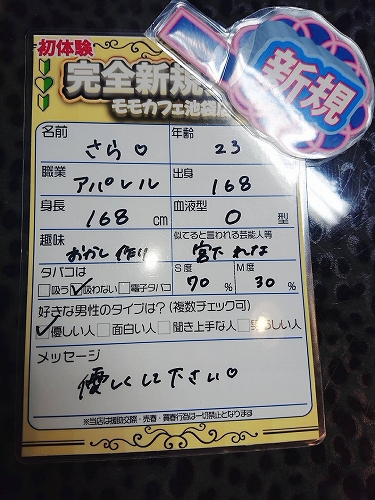 初体験
完全新規
モモカフェ池袋
新規
名前 さら♡ 年齢 23
職業 アパレル 出身 168
身長 168 cm 血液型 O 型
趣味 おかし作り 似てると言われる芸能人等 宮下れな
タバコは □吸う ☑吸わない □電子タバコ S度 70 % M度 30 %
好きな男性のタイプは?(複数チェック可)
☑優しい人 □面白い人 □聞き上手な人 □男らしい人
メッセージ
優しくして下さい♡
※当店は援助交際・売春・買春行為は一切禁止となります